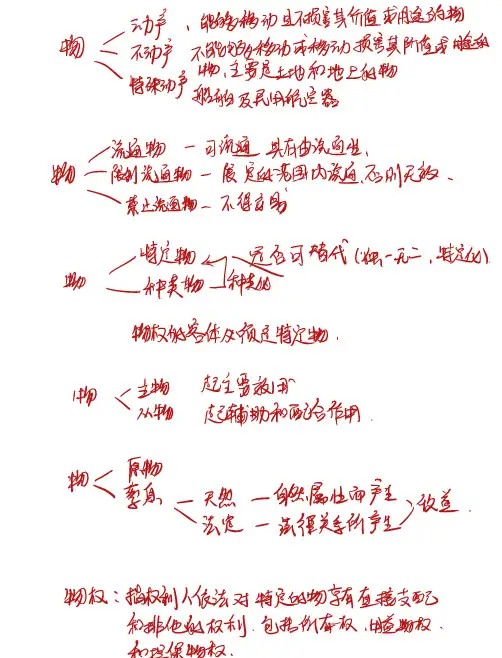 物 动产 、能够移动且不损害其价值或用途的物
不动产 不能够移动或移动损害其价值或用途的
物,主要是土地和地上的物
特殊动产 船舶及民用航空器
物 流通物 — 可流通 具有自由流通性.
限制流通物 — 限定的范围内流通,否则无效.
禁止流通物 — 不得交易
物 特定物 是否可替代 (独一无二,特定化)
种类物 种类化
物权的客体必须是特定物.
物 主物 起主要效用
从物 起辅助和配合作用.
物 原物
孳息 天然 — 自然属性而产生
法定 — 法律关系所产生 收益.
物权:指权利人依法对特定的物享有直接支配
和排他的权利.包括所有权.用益物权.
和担保物权.